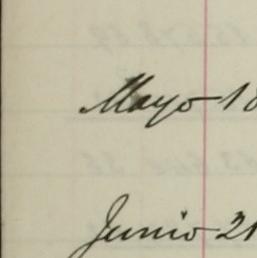 Mayo 18
Junio 21